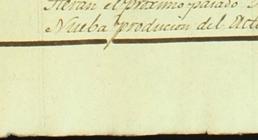 el proximo pasado
Nueba producion del